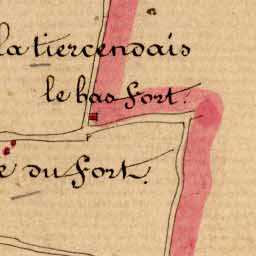 la tiercendais
le bas fort.
e du fort.